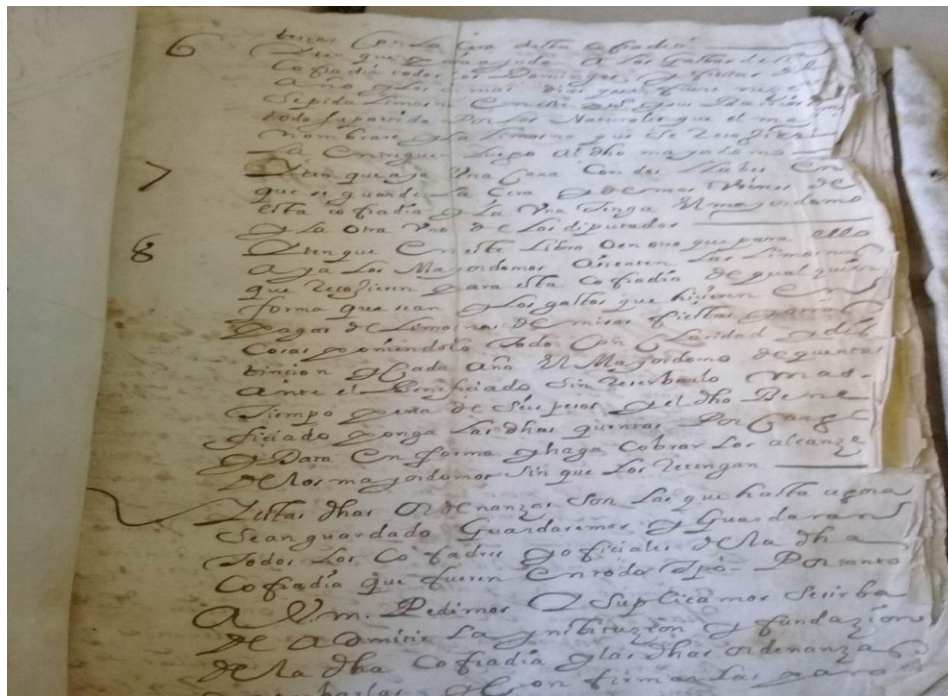 tenga Con La Cera desta cofradia
6 Yten que Para ayuda A Los Gastos de la
Cofradia todos los Domingos y fiestas del
Año y Los demas dias que fuere
Se pida Limosna
toda Por Los Naturales que el ma
nombrare y La Limosna que Se Recogiere
La Entreguen Luego Al dho mayordomo
7 Yten que aya Vna Caxa Con dos llabes En
que se guarde La Cera y demas vienes de
esta cofradia y La Vna Tenga El mayordomo
y La Otra Vno de Los diputados
8 Yten que En este Libro O en otro que para ello
Aya Los Mayordomos Asienten Las Limosnas
que Recogieren para esta Cofradia de qualquier
forma que sean y Los gastos que hizieren En
pagas de Limosnas de misas fiestas y
Cosas poniendolo todo Con Claridad y
tincion y Cada Año El Mayordomo de quentas
Ante el Beneficiado Sin reserbarlo mas
Tiempo pena de Seis pesos y el dho Bene
ficiado ponga Las dhas quentas Por Cargo
y Data En forma y haga Cobrar Los alcanze
de los mayordomos Sin que Los Retengan
Y estas dhas Ordenanzas Son Las que hasta agora
Se an guardado Guardaremos y Guardaran
Todos Los Cofadres y oficiales de la dha
Cofradia que fueren En todo tpo Por tanto
A V.m. Pedimos Y Suplicamos Se sirba
de Admitir La ynstituzion y fundazion
de la dha Cofradia y las dhas ordenanzas
y Confirmarlas para